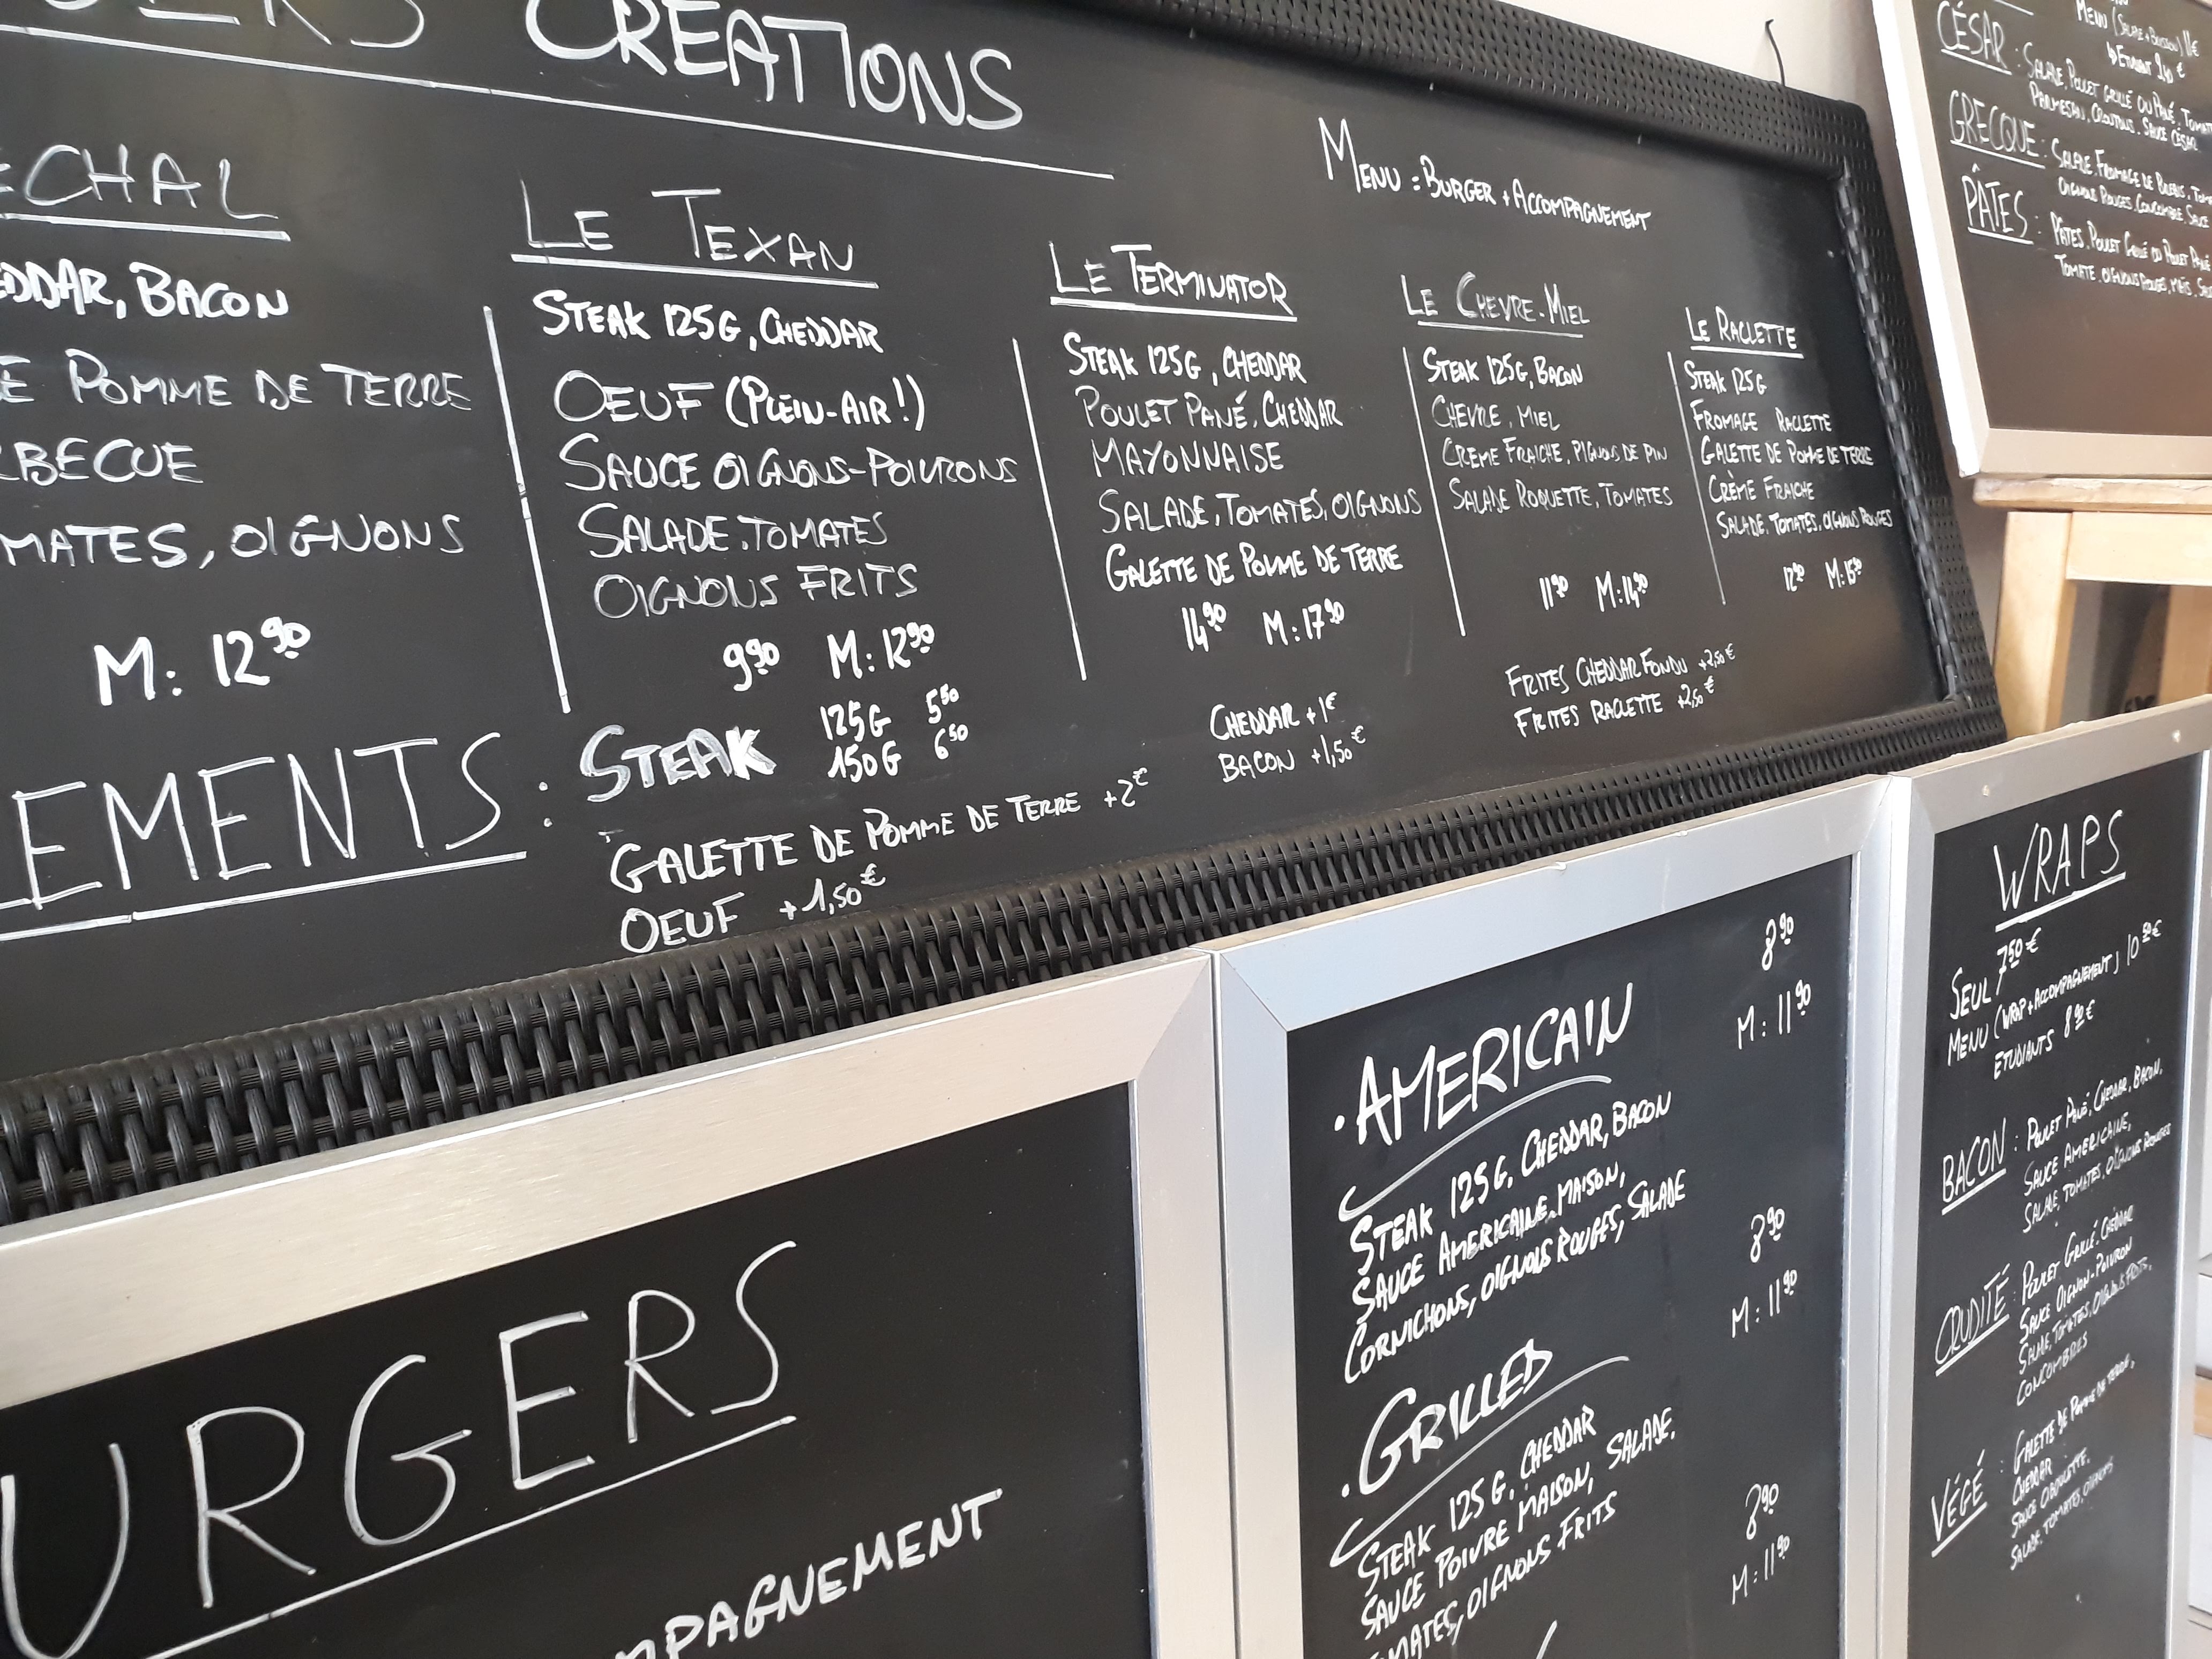 CREATIONS
MENU : BURGER + ACCOMPAGNEMENT
BACON
POMME DE TERRE
OIGNONS
M: 12⁹⁰
LE TEXAN
STEAK 125G, CHEDDAR
OEUF (PLEIN-AIR!)
SAUCE OIGNONS-POIVRONS
SALADE. TOMATES
OIGNONS FRITS
9⁹⁰ M: 12⁹⁰
LE TERMINATOR
STEAK 125G, CHEDDAR
POULET PANÉ, CHEDDAR
MAYONNAISE
SALADE, TOMATES, OIGNONS
GALETTE DE POMME DE TERRE
14⁹⁰ M: 17⁹⁰
LE CHEVRE-MIEL
STEAK 125G, BACON
CHEVRE, MIEL
CREME FRAICHE, PIGNONS DE PIN
SALADE ROQUETTE, TOMATES
11⁹⁰ M: 14⁹⁰
LE RACLETTE
STEAK 125G
FROMAGE RACLETTE
GALETTE DE POMME DE TERRE
CRÈME FRAICHE
SALADE, TOMATES, OIGNONS ROUGES
12⁹⁰ M: 15⁹⁰
EMENTS : STEAK 125G 5⁵⁰
150G 6⁵⁰
GALETTE DE POMME DE TERRE +2€
OEUF +1,50€
CHEDDAR +1€
BACON +1,50€
FRITES CHEDDAR FONDU +2,50€
FRITES RACLETTE +2,50€
CÉSAR : SALADE, POULET GRILLÉ OU PANÉ, TOMAT
PARMESAN, CROUTONS, SAUCE CÉSAR
MENU (SALADE + BOISSON) 11€
ETUDIANT 9⁴⁰€
GRECQUE : SALADE, FROMAGE DE BREBIS, TOM
OIGNONS ROUGES, CONCOMBRE, SAUCE
PÂTES : PÂTES, POULET GRILLÉ OU POULET PANÉ
TOMATE, OIGNONS ROUGES, MAÏS, SAU
URGERS
MPAGNEMENT
8⁹⁰
M: 11⁹⁰
• AMERICAIN
STEAK 125G, CHEDDAR, BACON
SAUCE AMERICAINE MAISON,
CORNICHONS, OIGNONS ROUGES, SALADE
8⁹⁰
M: 11⁹⁰
• GRILLED
STEAK 125G, CHEDDAR
SAUCE POIVRE MAISON, SALADE,
TOMATES, OIGNONS FRITS
8⁹⁰
M: 11⁹⁰
WRAPS
SEUL 7⁵⁰€
MENU (WRAP + ACCOMPAGNEMENT) 10⁵⁰€
ETUDIANTS 8⁹⁰€
BACON : POULET PANÉ, CHEDDAR, BACON,
SAUCE AMERICAINE,
SALADE, TOMATES, OIGNONS ROUGES
CRUDITÉ : POULET GRILLÉ, CHEDDAR
SAUCE OIGNON-POIVRON
SALADE, TOMATES, OIGNONS FRITS,
CONCOMBRES
VÉGÉ : GALETTE DE POMME DE TERRE,
CHEDDAR
SAUCE CIBOULETTE,
SALADE, TOMATES, OIGNONS